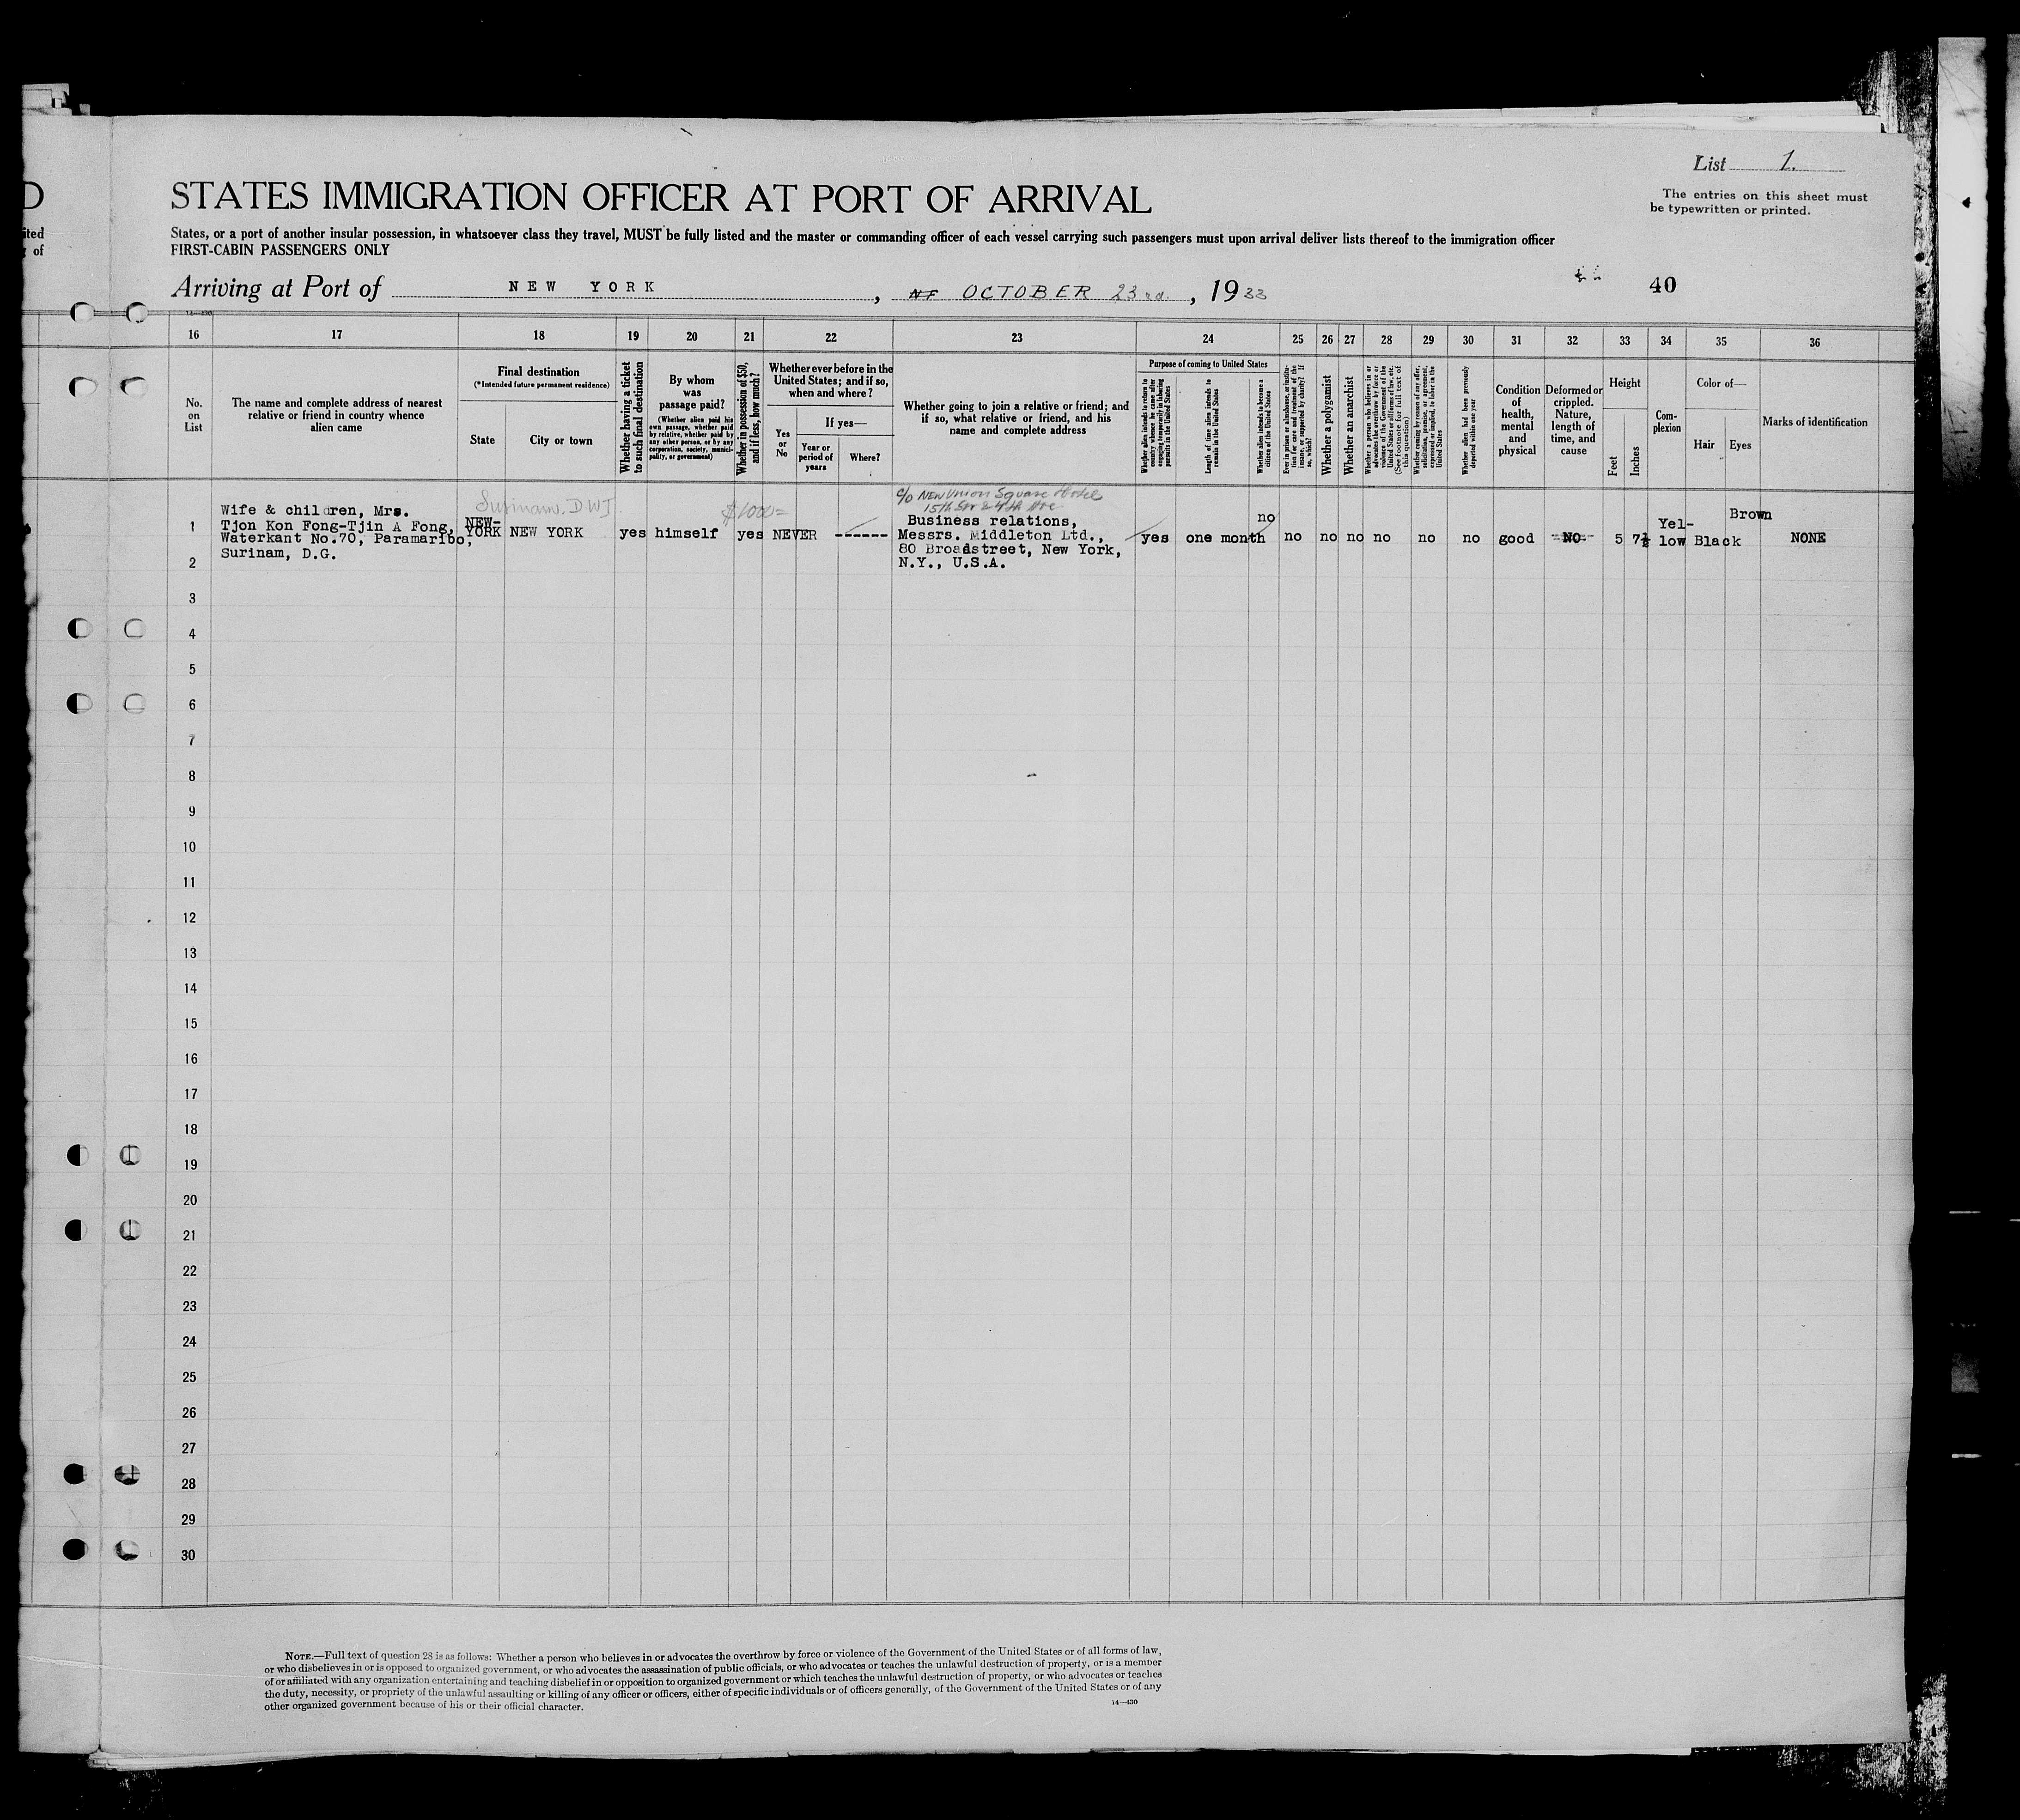 D
ited
of
List 1.
The entries on this sheet must
be typewritten or printed.
STATES IMMIGRATION OFFICER AT PORT OF ARRIVAL
States, or a port of another insular possession, in whatsoever class they travel, MUST be fully listed and the master or commanding officer of each vessel carrying such passengers must upon arrival deliver lists thereof to the immigration officer
FIRST-CABIN PASSENGERS ONLY
Arriving at Port of NEW YORK, OCTOBER 23rd., 1933
40
14—430
16 17 18 19 20 21 22 23 24 25 26 27 28 29 30 31 32 33 34 35 36
No.
on
List
The name and complete address of nearest
relative or friend in country whence
alien came
Final destination
(*Intended future permanent residence)
State
City or town
Whether having a ticket
to such final destination
By whom
was
passage paid?
(Whether alien paid his
own passage, whether paid
by relative, whether paid by
any other person, or by any
corporation, society, munici-
pality, or government)
Whether in possession of $50,
and if less, how much?
Whether ever before in the
United States; and if so,
when and where?
Yes
or
No
If yes—
Year or
period of
years
Where?
Whether going to join a relative or friend; and
if so, what relative or friend, and his
name and complete address
Purpose of coming to United States
Whether alien intends to return to
country whence he came after
engaging temporarily in laboring
pursuits in the United States
Length of time alien intends to
remain in the United States
Whether alien intends to become a
citizen of the United States
Ever in prison or almshouse, or institu-
tion for care and treatment of the
insane, or supported by charity? If
so, which?
Whether a polygamist
Whether an anarchist
Whether a person who believes in or
advocates the overthrow by force or
violence of the Government of the
United States or all forms of law, etc.
(See footnote for full text of
this question)
Whether coming by reason of any offer,
solicitation, promise, or agreement,
expressed or implied, to labor in the
United States
Whether alien had been previously
deported within one year
Condition
of
health,
mental
and
physical
Deformed or
crippled.
Nature,
length of
time, and
cause
Height
Feet
Inches
Com-
plexion
Color of—
Hair
Eyes
Marks of identification
1
Wife & children, Mrs.
Tjon Kon Fong-Tjin A Fong,
Waterkant No.70, Paramaribo,
Surinam, D.G.
Surinam. DWI
NEW-
YORK
NEW YORK
yes
himself
$1000=
yes
NEVER
------
c/o New Union Square Hotel
15th Str & 4th Ave
Business relations,
Messrs. Middleton Ltd.,
80 Broadstreet, New York,
N.Y., U.S.A.
yes
one month
no
no
no
no
no
no
no
good
NO
5
7½
Yel-
low
Black
Brown
NONE
2
3
4
5
6
7
8
9
10
11
12
13
14
15
16
17
18
19
20
21
22
23
24
25
26
27
28
29
30
NOTE.—Full text of question 28 is as follows: Whether a person who believes in or advocates the overthrow by force or violence of the Government of the United States or of all forms of law,
or who disbelieves in or is opposed to organized government, or who advocates the assassination of public officials, or who advocates or teaches the unlawful destruction of property, or is a member
of or affiliated with any organization entertaining and teaching disbelief in or opposition to organized government or which teaches the unlawful destruction of property, or who advocates or teaches
the duty, necessity, or propriety of the unlawful assaulting or killing of any officer or officers, either of specific individuals or of officers generally, of the Government of the United States or of any
other organized government because of his or their official character.
14—430